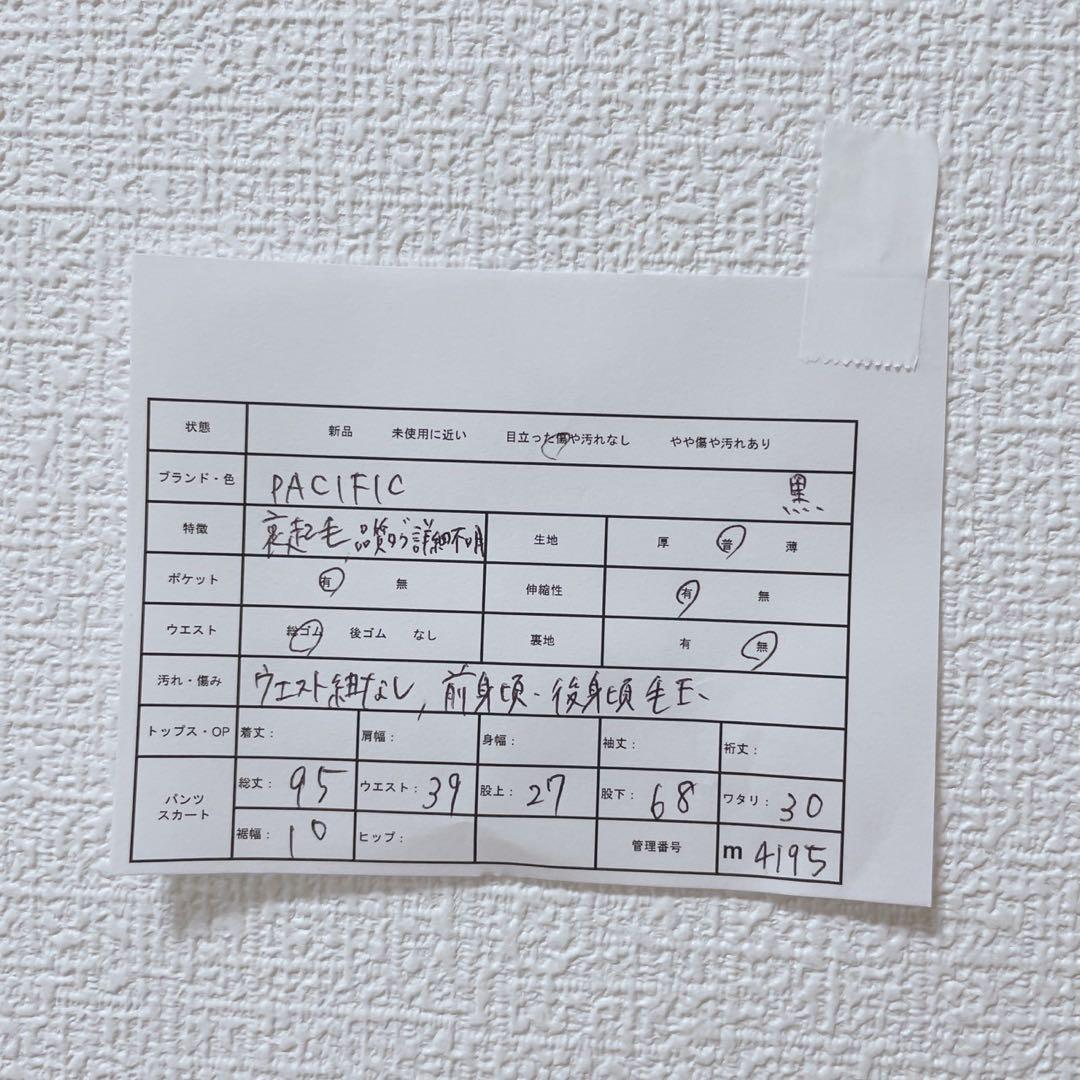 状態 新品 未使用に近い 目立った傷や汚れなし やや傷や汚れあり
ブランド・色 PACIFIC 黒
特徴 裏起毛、品質 詳細不明 生地 厚 普 薄
ポケット 有 無 伸縮性 有 無
ウエスト 総ゴム 後ゴム なし 裏地 有 無
汚れ・傷み ウエスト紐なし, 前身頃・後身頃毛玉、
トップス・OP 着丈: 肩幅: 身幅: 袖丈: 裄丈:
パンツ スカート 総丈: 95 ウエスト: 39 股上: 27 股下: 68 ワタリ: 30
裾幅: 10 ヒップ: 管理番号 m 4195